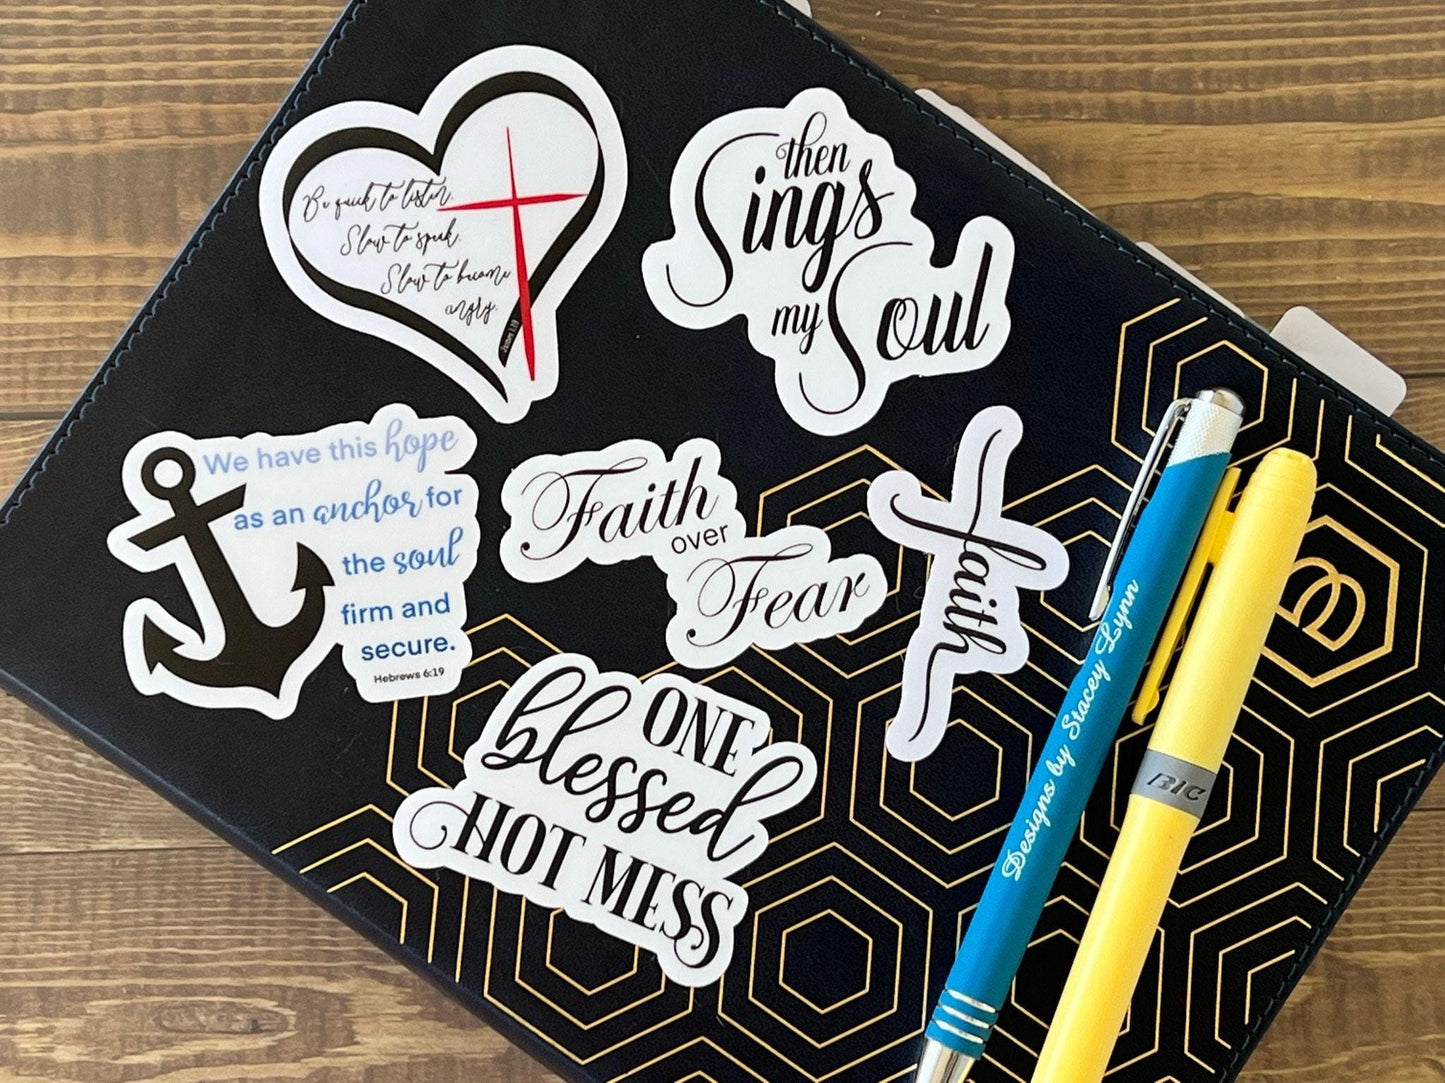 Be quick to listen.
Slow to speak.
Slow to become
angry.
James 1:19
then
Sings
my Soul
We have this hope
as an anchor for
the soul
firm and
secure.
Hebrews 6:19
Faith
over
Fear
faith
ONE
blessed
HOT MESS
Designs by Stacey Lynn
BIC